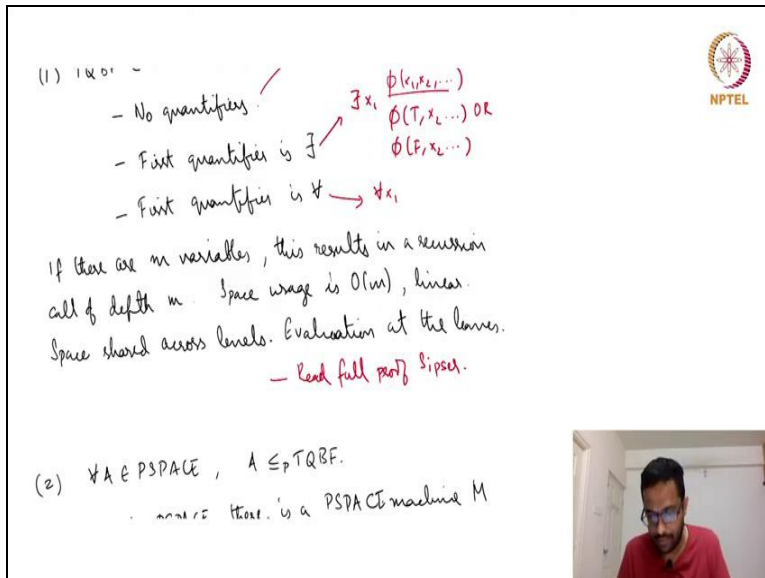 (1)
- No quantifiers.
- First quantifier is ∃
∃x₁ ϕ(x₁,x₂,...)
ϕ(T,x₂...) OR
ϕ(F,x₂...)
- First quantifier is ∀ → ∀x₁
If there are m variables, this results in a recursion
call of depth m. Space usage is O(m), linear.
Space shared across levels. Evaluation at the leaves.
- Read full proof Sipser.
(2) ∀A ∈ PSPACE, A ≤ₚ TQBF.
there is a PSPACE machine M
NPTEL